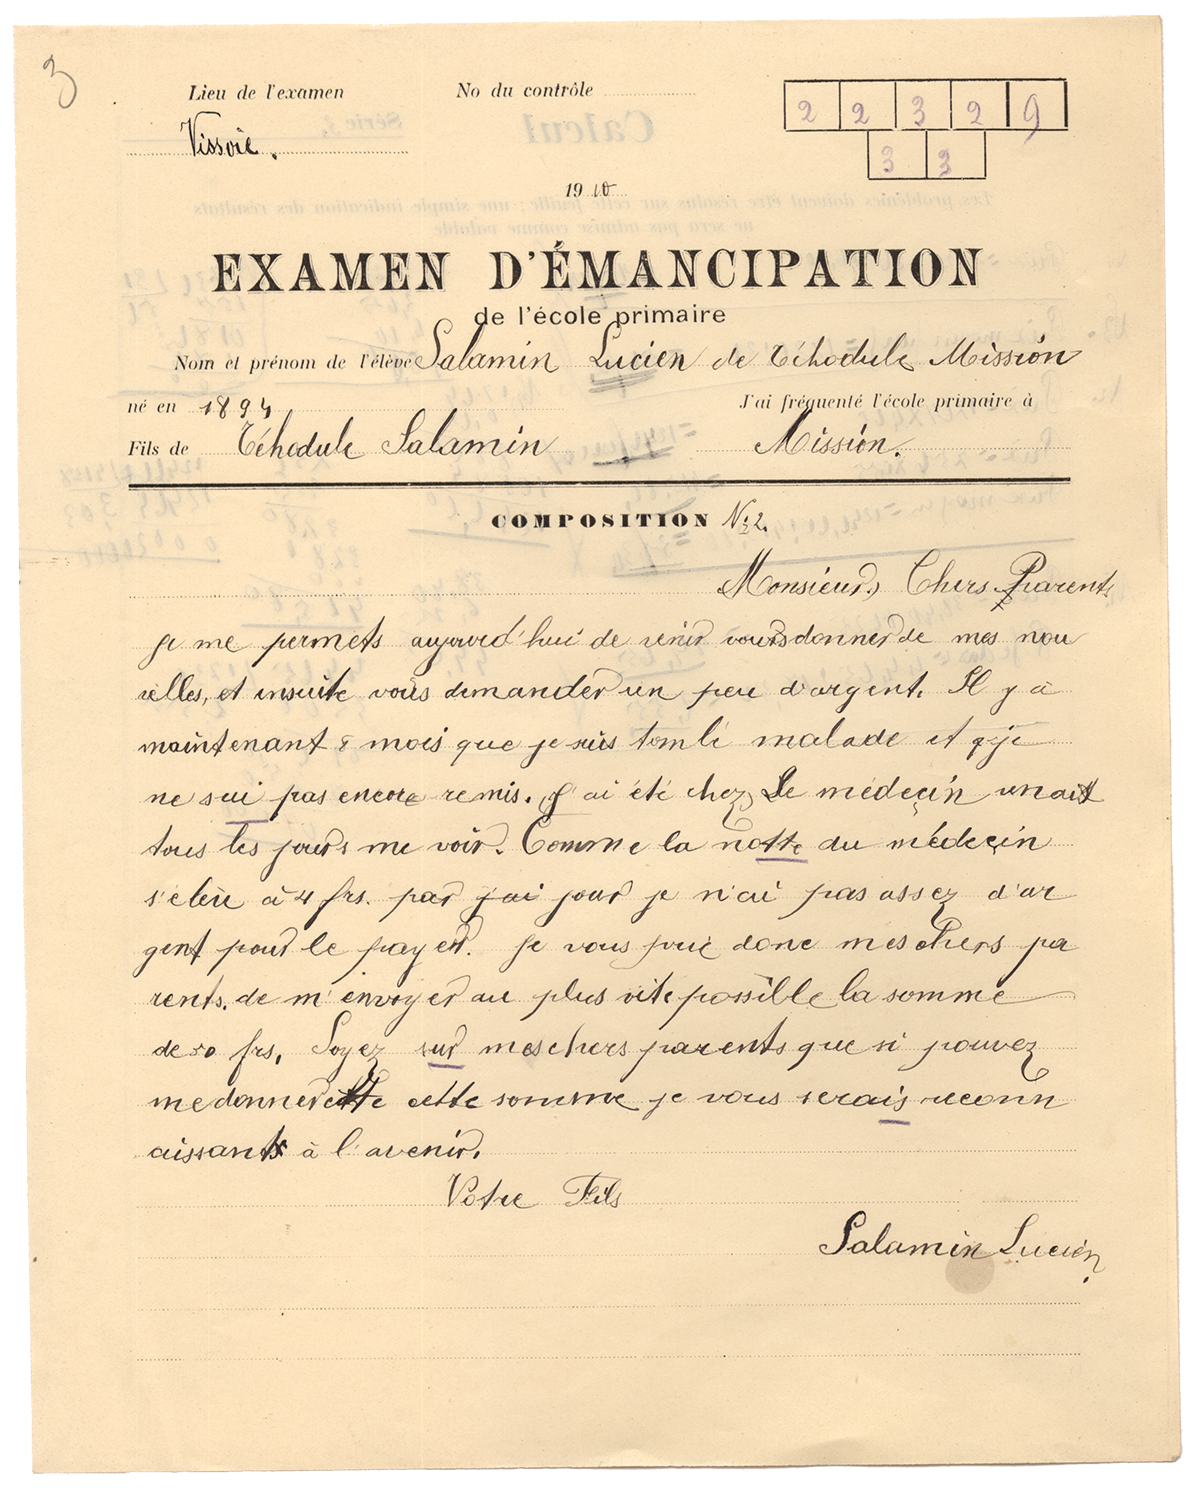 3
Lieu de l'examen
No du contrôle
2 2 3 2 9
Vissoie.
3 3
1910
EXAMEN D'ÉMANCIPATION
de l'école primaire
Nom et prénom de l'élève Salamin Lucien de Théhodule Mission
né en 1894
J'ai fréquenté l'école primaire à
Fils de Théhodule Salamin
Mission.
COMPOSITION No 2.
Monsieur, Chers Parents
Je me permets aujourd'hui de venir vous donner de mes nou
velles, et ensuite vous demander un peu d'argent. Il y a
maintenant 8 mois que je suis tombé malade et que je
ne sui pas encore remis. J'ai été chez Le médeçin venait
tous les jours me voir. Comme la notte du médeçin
s'elève à 4 frs. par j'ai jour je n'ai pas assez d'ar
gent pour le payer. Je vous prie donc mes chers pa
rents. de m'envoyer au plus vite possible la somme
de 50 frs. Soyez sur mes chers parents que si pouvez
me donner cette somme je vous serais reconn
aissant à l'avenir.
Votre Fils
Salamin Lucien